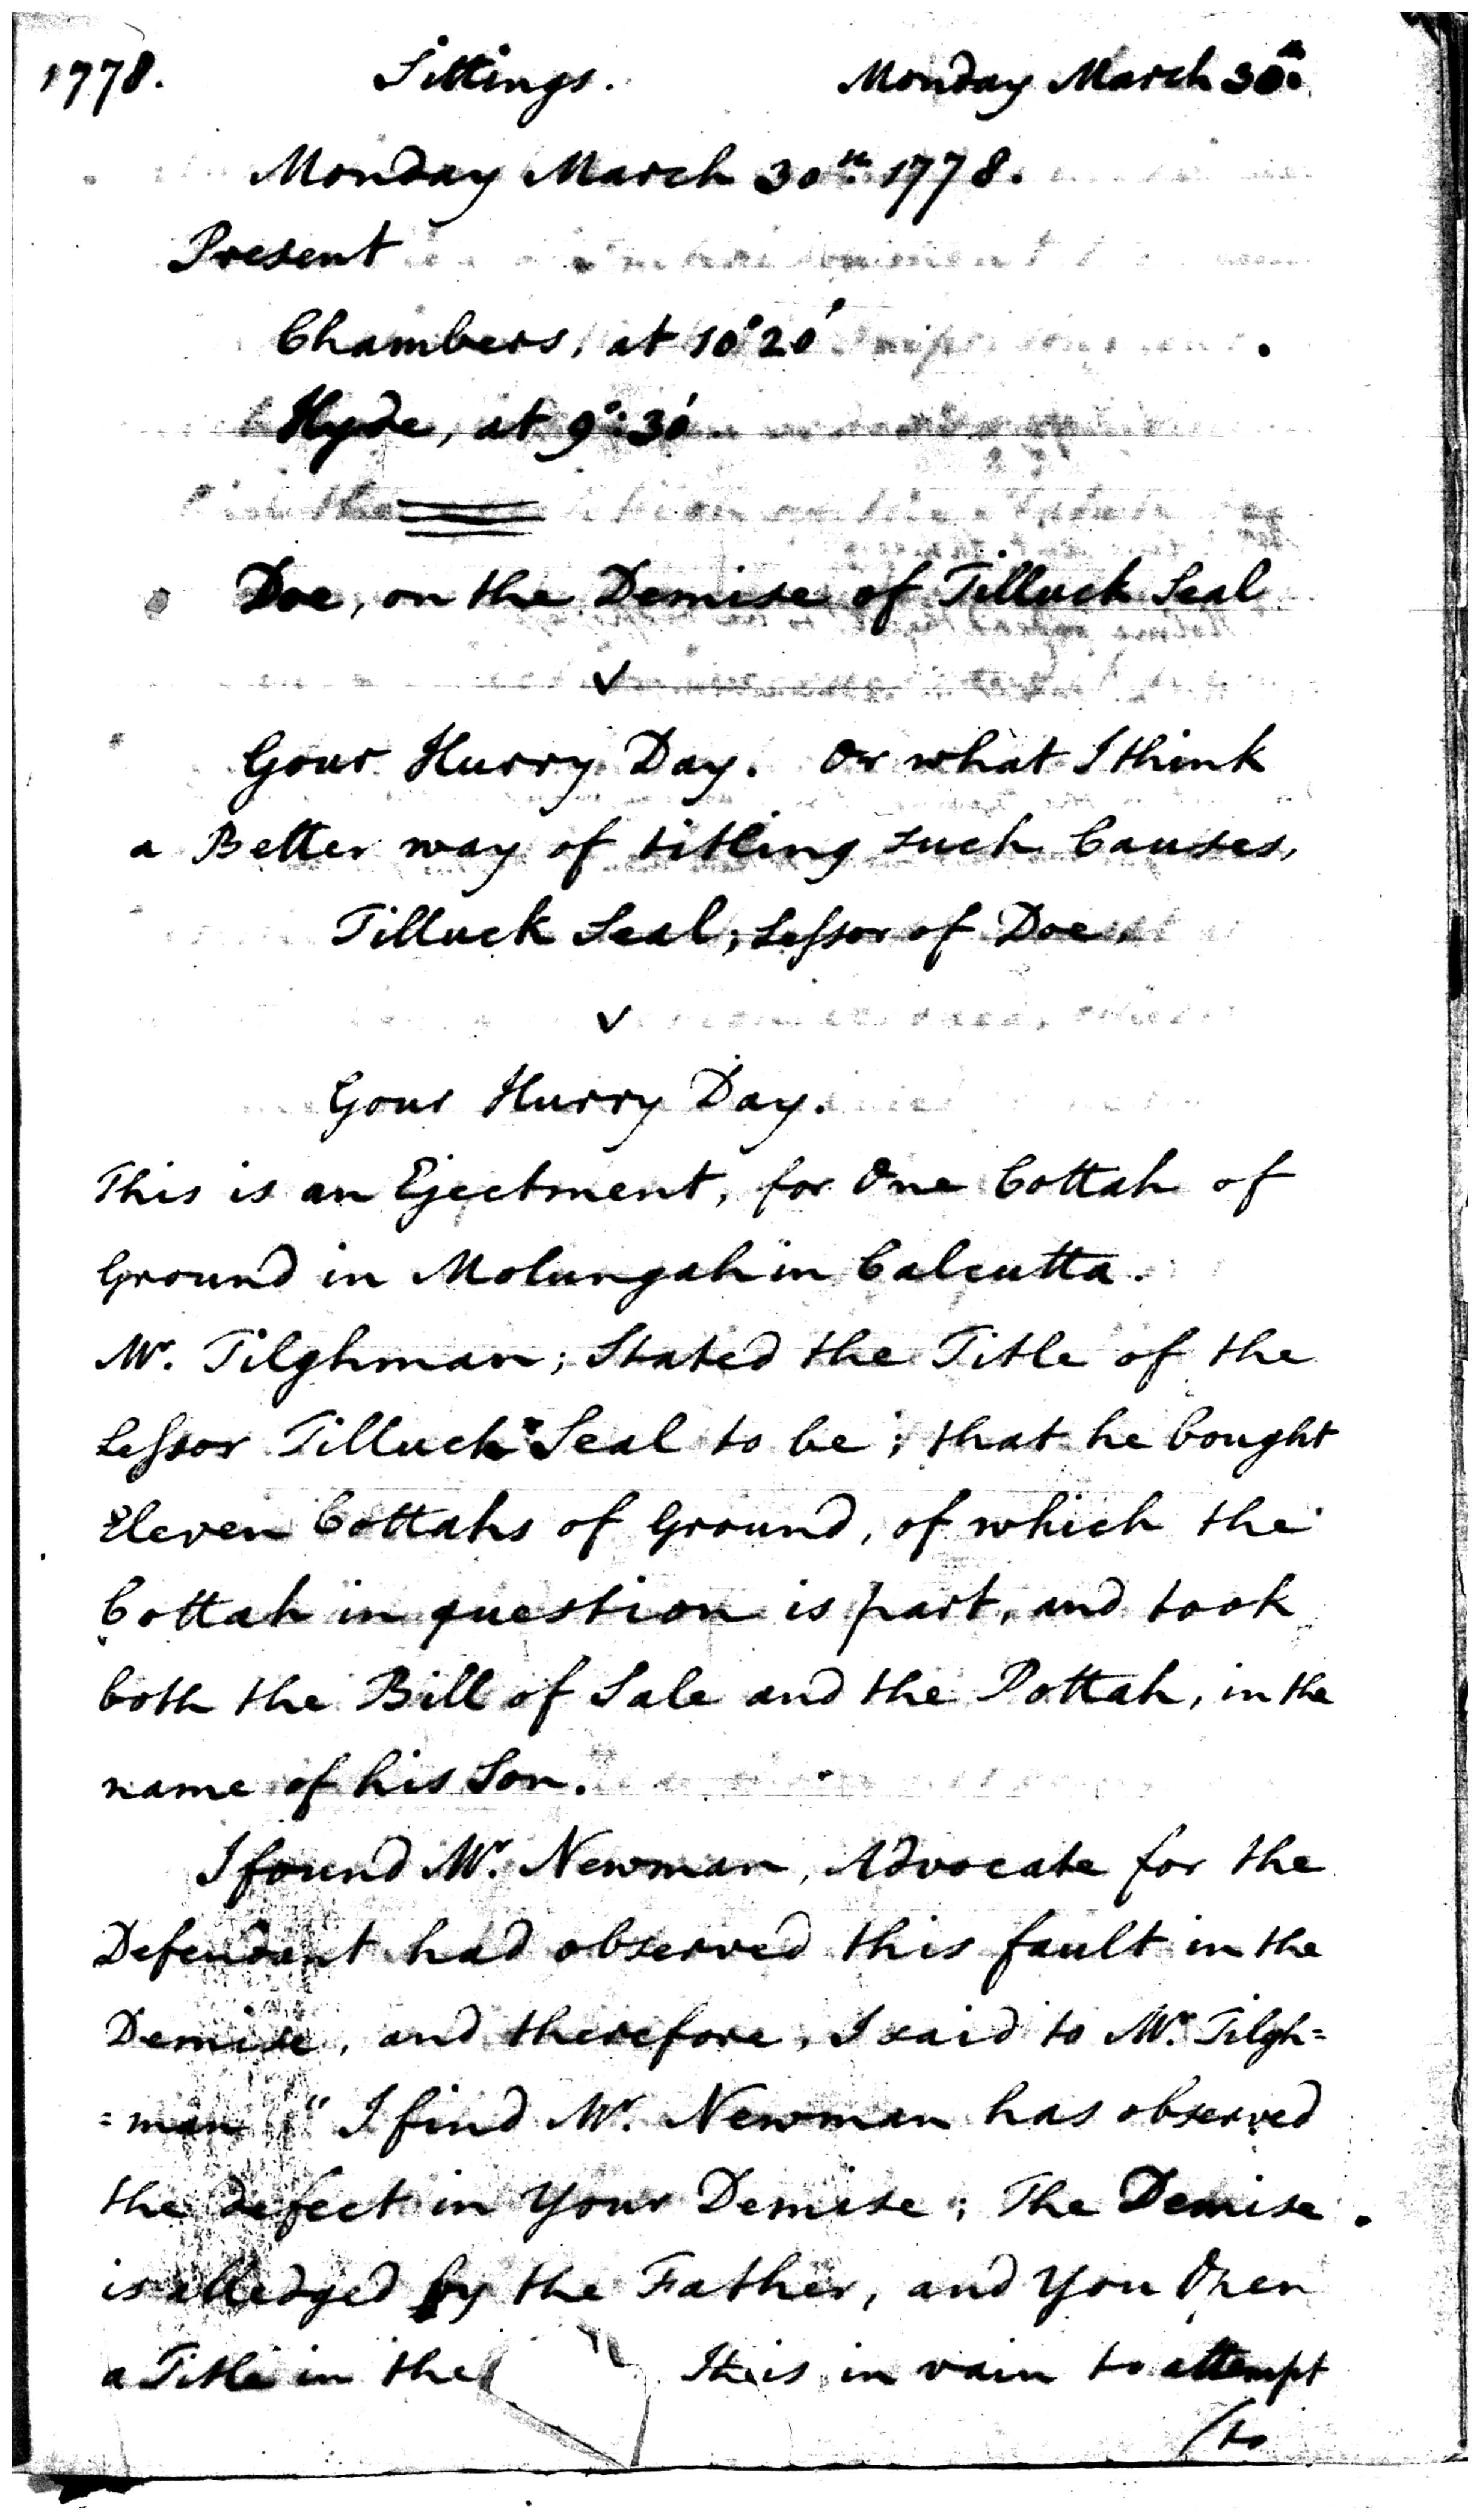 1778. Sittings. Monday March 30th.
Monday March 30th. 1778.
Present
Chambers, at 10°20'
Hyde, at 9°:30'
Doe, on the Demise of Tilluck Seal
v
Gour Hurry Day. Or what I think
a Better way of titling such Causes,
Tilluck Seal; Lessor of Doe,
v
Gour Hurry Day.
This is an Ejectment, for One Cottah of
Ground in Molungah in Calcutta.
Mr. Tilghman; Stated the Title of the
Lessor Tilluck Seal to be; that he bought
Eleven Cottahs of Ground, of which the
Cottah in question is part, and took
both the Bill of Sale and the Pottah, in the
name of his Son.
I found Mr. Newman, Advocate for the
Defendant had observed this fault in the
Demise, and therefore, I said to Mr. Tilgh=
=man "I find Mr. Newman has observed
the defect in Your Demise; The Demise
is alledged by the Father, and You Open
a Title in the It is in vain to attempt
/to